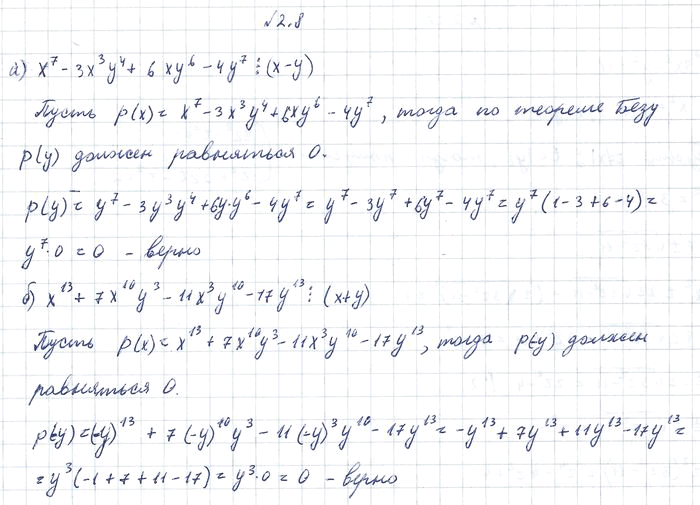 №2.8
а) x⁷ - 3x³y⁴ + 6xy⁶ - 4y⁷ ⋮ (x-y)
Пусть p(x) = x⁷ - 3x³y⁴ + 6xy⁶ - 4y⁷, тогда по теореме Безу
p(y) должен равняться 0.
p(y) = y⁷ - 3y³y⁴ + 6y·y⁶ - 4y⁷ = y⁷ - 3y⁷ + 6y⁷ - 4y⁷ = y⁷(1-3+6-4) =
y⁷·0 = 0 - верно
б) x¹³ + 7x¹⁰y³ - 11x³y¹⁰ - 17y¹³ ⋮ (x+y)
Пусть p(x) = x¹³ + 7x¹⁰y³ - 11x³y¹⁰ - 17y¹³, тогда p(-y) должен
равняться 0.
p(-y) = (-y)¹³ + 7(-y)¹⁰y³ - 11(-y)³y¹⁰ - 17y¹³ = -y¹³ + 7y¹³ + 11y¹³ - 17y¹³ =
= y³(-1+7+11-17) = y³·0 = 0 - верно